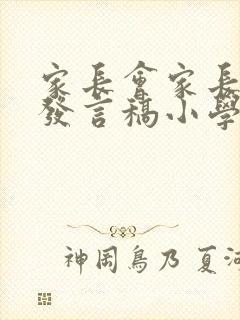 家長會家長
發言稿小學
神岡鳥乃 夏河